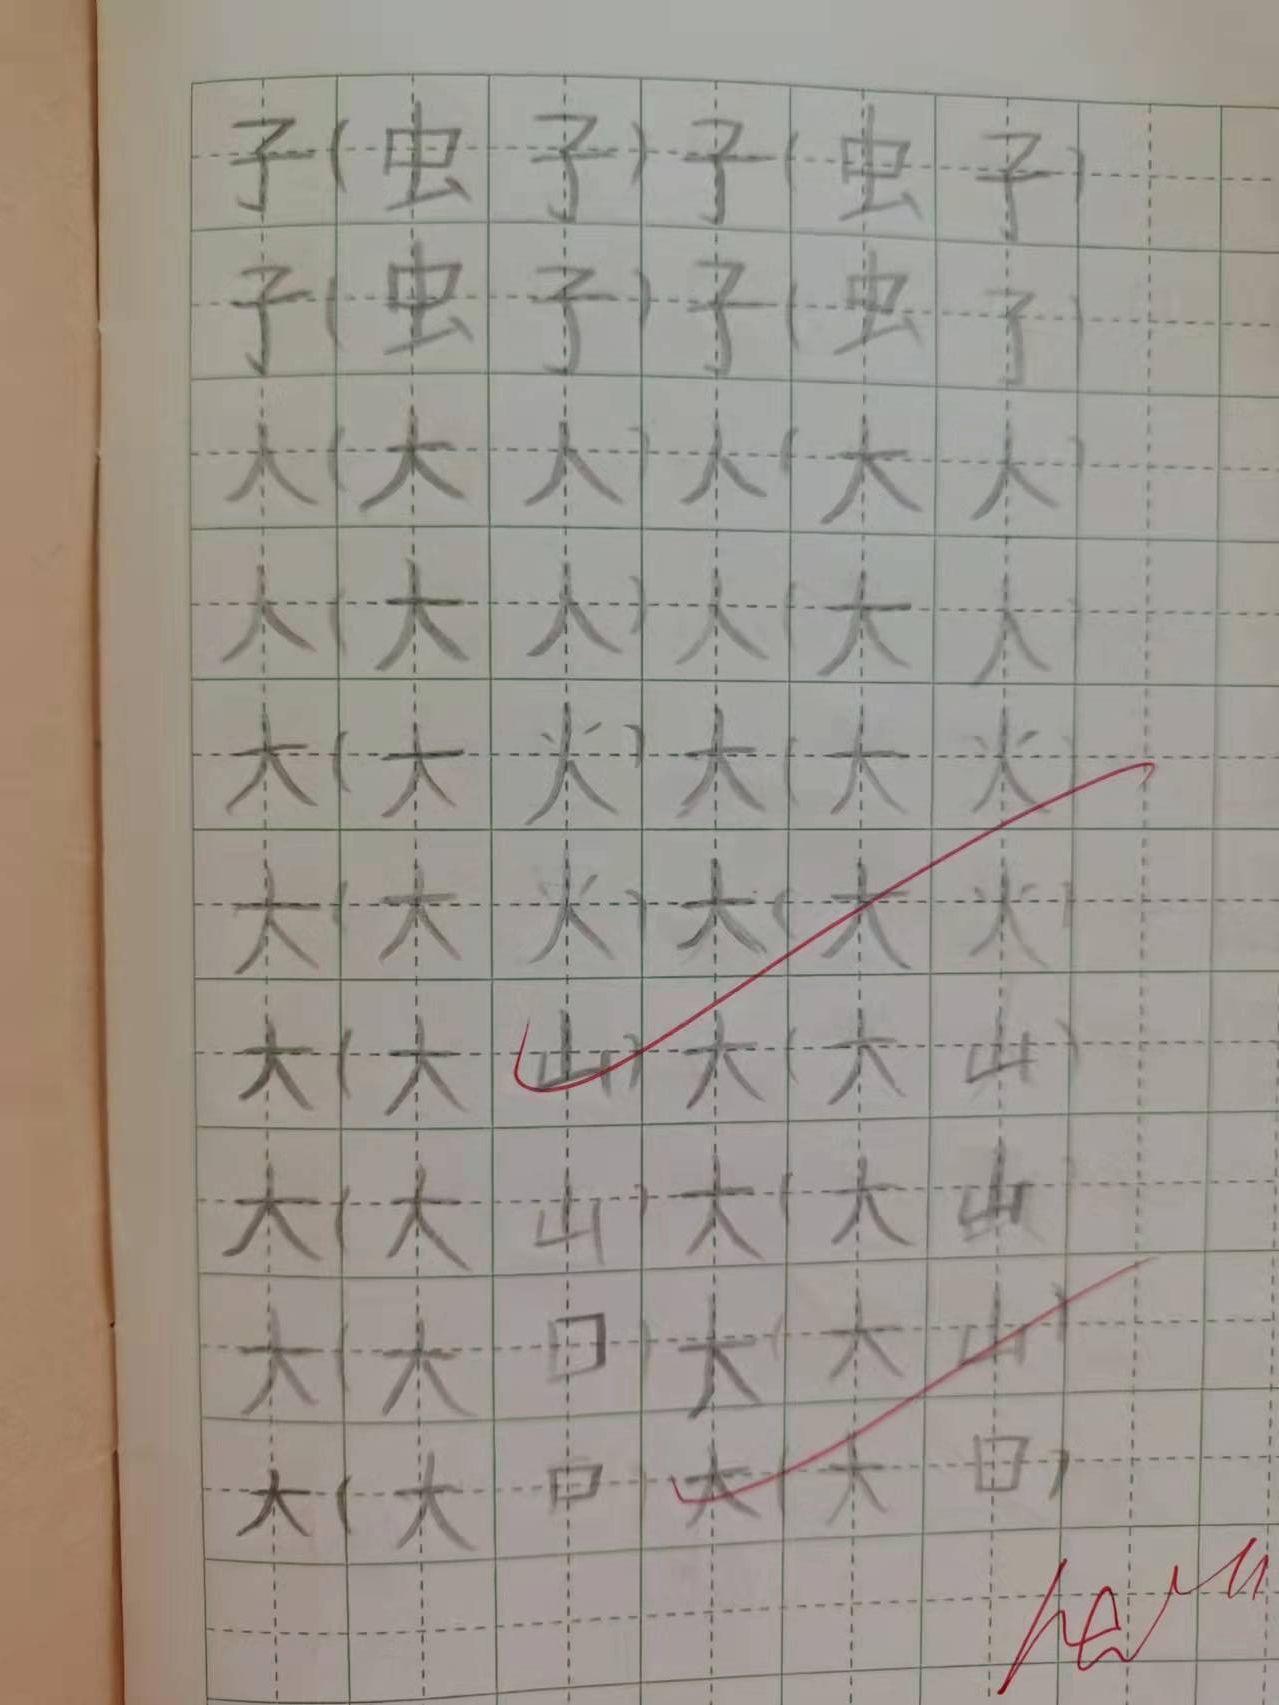 子(虫子)子(虫子)
子(虫子)子(虫子)
人(大人)人(大人)
人(大人)人(大人)
大(大火)大(大火)
大(大火)大(大火)
大(大山)大(大山)
大(大山)大(大山)
大(大口)大(大山)
大(大口)大(大口)